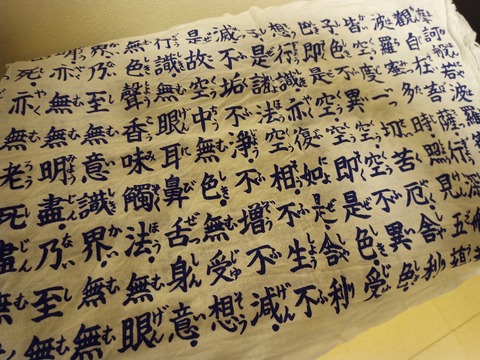 觀自在菩薩行深
波羅蜜多時照見五
皆空度一切苦厄舍利
子色不異空空不異色
色即是空空即是色受
想行識亦復如是舍利
子是諸法空相不生不
滅不垢不淨不增不減
是故空中無色無受想
行識無眼耳鼻舌身意
無色聲香味觸法無眼
界乃至無意識界無無
明亦無無明盡乃至無
死亦無老死盡無